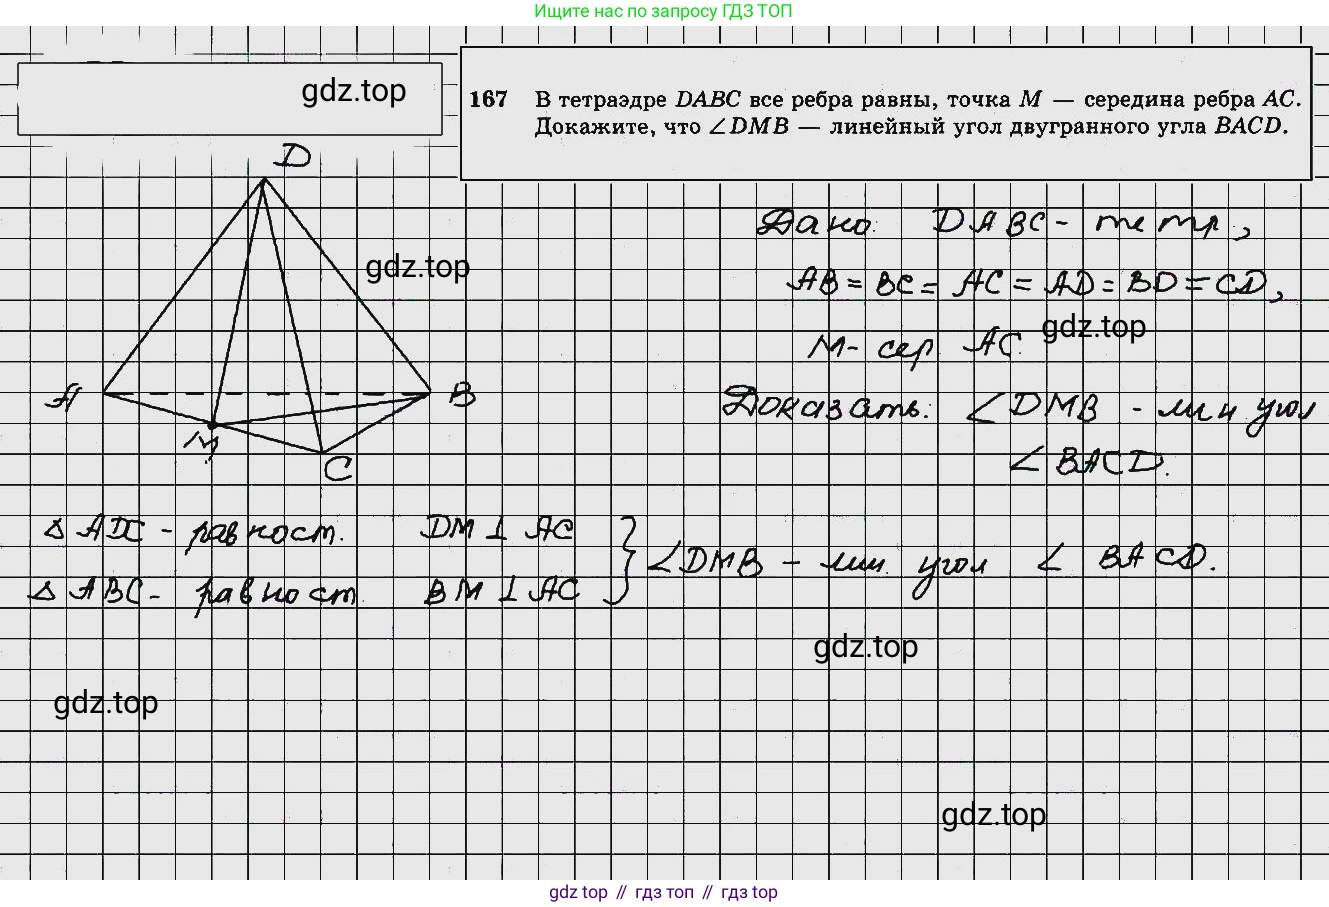 Ищите нас по запросу ГДЗ ТОП
gdz.top
167 В тетраэдре DABC все ребра равны, точка M — середина ребра AC.
Докажите, что ∠DMB — линейный угол двугранного угла BACD.
D
Дано: DABC - тетр,
gdz.top
AB = BC = AC = AD = BD = CD,
gdz.top
M - сер AC
A
B
Доказать: ∠DMB - лин угол
M
C
∠BACD.
△ADC - равност. DM ⊥ AC
∠DMB - лин. угол ∠BACD.
△ABC - равност. BM ⊥ AC
gdz.top
gdz.top
gdz.top
gdz top // гдз топ // gdz top